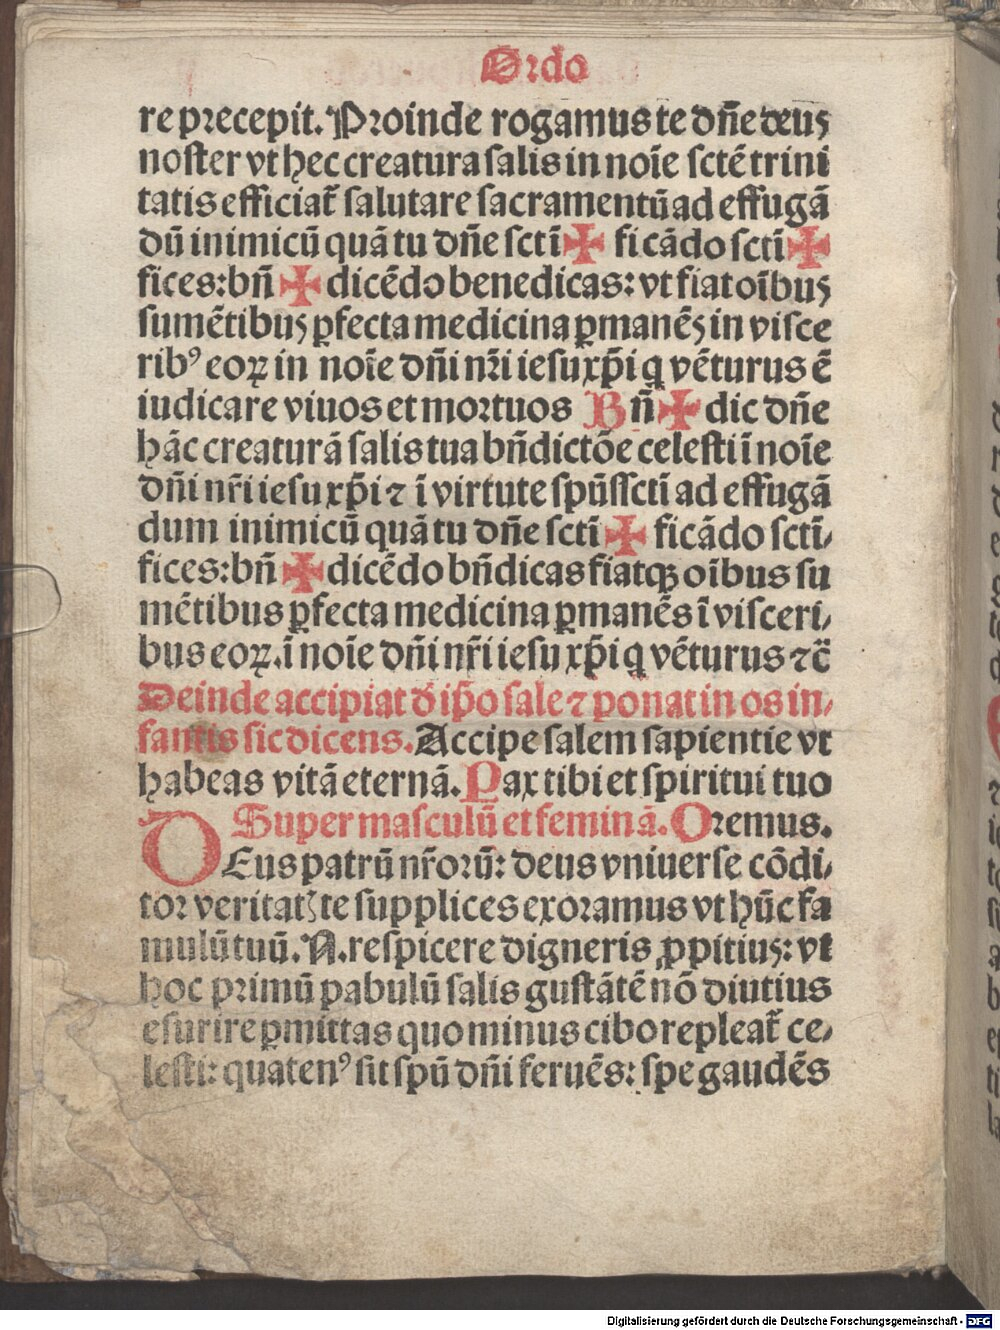 Ordo
re precepit. Proinde rogamus te dñe deus
noster vt hec creatura salis in noīe sctē trini
tatis efficiat̃ salutare sacramentū ad effugā
dū inimicū quā tu dñe sctī ✠ ficādo sctī ✠
fices: bñ ✠ dicēdo benedicas: vt fiat oībus
sumētibus ꝑfecta medicina ꝑmanēs in visce
rib⁹ eoꝝ in noīe dñi nr̄i iesu xp̄i q vēturus ē
iudicare viuos et mortuos Bñ ✠ dic dñe
hāc creaturā salis tua bñdictōe celesti ī noīe
dñi nr̄i iesu xp̄i ⁊ ī virtute spūssctī ad effugā
dum inimicū quā tu dñe sctī ✠ ficādo sctī/
fices: bñ ✠ dicēdo bñdicas fiatqꝫ oībus su
mētibus ꝑfecta medicina ꝑmanēs ī visceri/
bus eoꝝ. ī noīe dñi nr̄i iesu xp̄i q vēturus ⁊c̄
Deinde accipiat d̄ ip̄o sale ⁊ ponat in os in/
fantis sic dicens. Accipe salem sapientie vt
habeas vitā eternā. Pax tibi et spiritui tuo
Super masculū et feminā. Oremus.
DEus patrū nr̄orū: deus vniuerse cōdi/
tor veritatꝭ te supplices exoramus vt hūc fa
mulū tuū. N. respicere digneris ꝓpitius: vt
hoc primū pabulū salis gustātē nō diutius
esurire ꝑmittas quo minus cibo repleat̃ ce/
lesti: quaten⁹ sit spū dñi feruēs: spe gaudēs
Digitalisierung gefördert durch die Deutsche Forschungsgemeinschaft - DFG